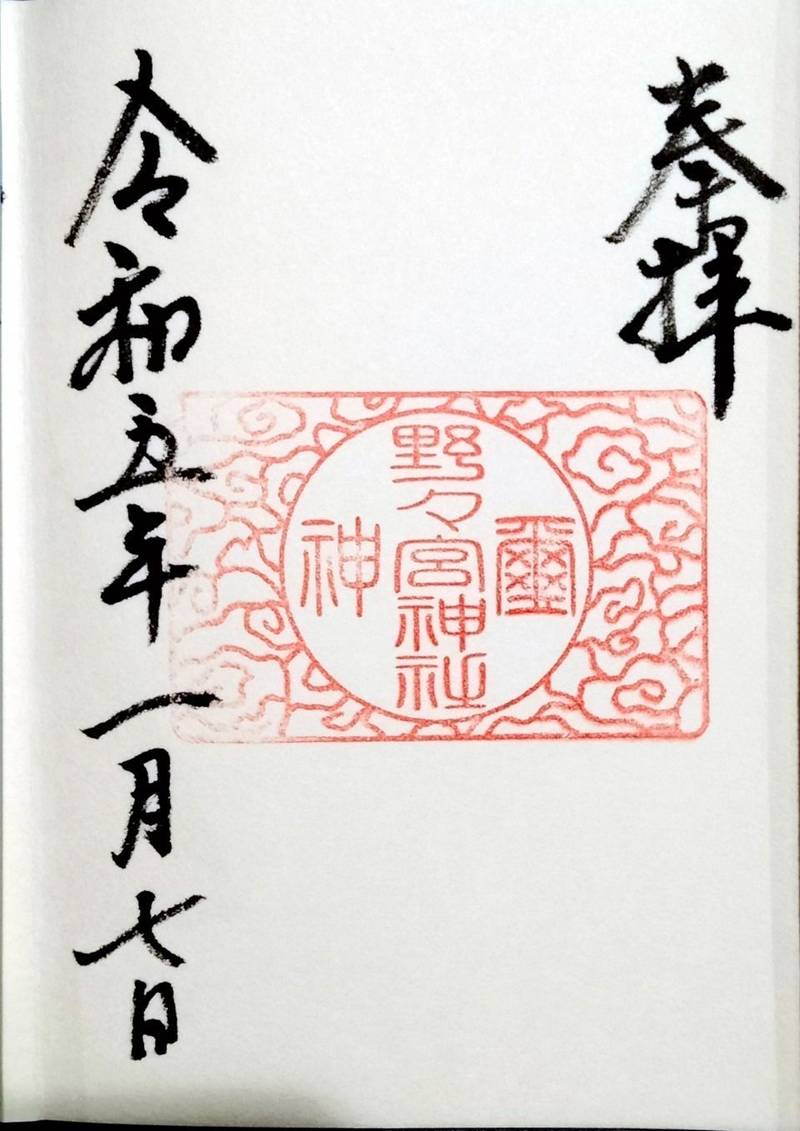 奉拝
神
野々宮神社
璽
令和五年一月七日